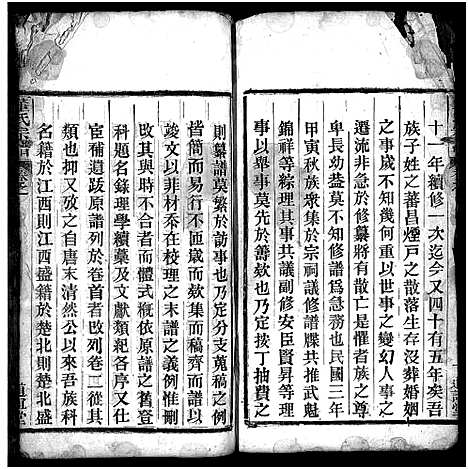 十一年續修一次迄今又四十有五年矣吾
族子姓之蕃昌煙戶之散落生存沒葬婚姻
之事咸不知幾何重以世事之變幻人事之
遷流非急於修纂將有散亡是懼者矣
卑長幼益莫不知修譜爲急務也民國三年
甲寅秋族眾集於宗祠議修譜牒共推武魁
錦祥等綜理其事共議副修安臣賢昇等理
事以舉事莫先於籌欵也乃定按丁抽費之
則事纂譜莫繁於訪事也乃定分支蒐稿之例
皆簡而易行不匝歲而集稿齊而譜
竣文以非材忝在校理之末譜之義例惟刪
改其與時不合者而體式槪依原譜之舊登
科題名錄理學續藁及文獻類紀各序又仕
宦補遺跋原譜列於卷首者玆改列卷二從其
類也抑又攷之自唐末清然公以來吾族科
名籍於江西則江西盛籍於楚北則楚北盛
氏宗譜